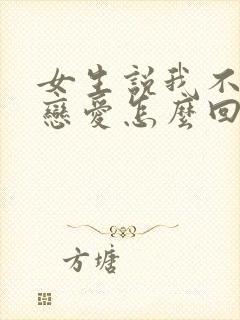 女生説我不
戀愛怎麼回
方塘